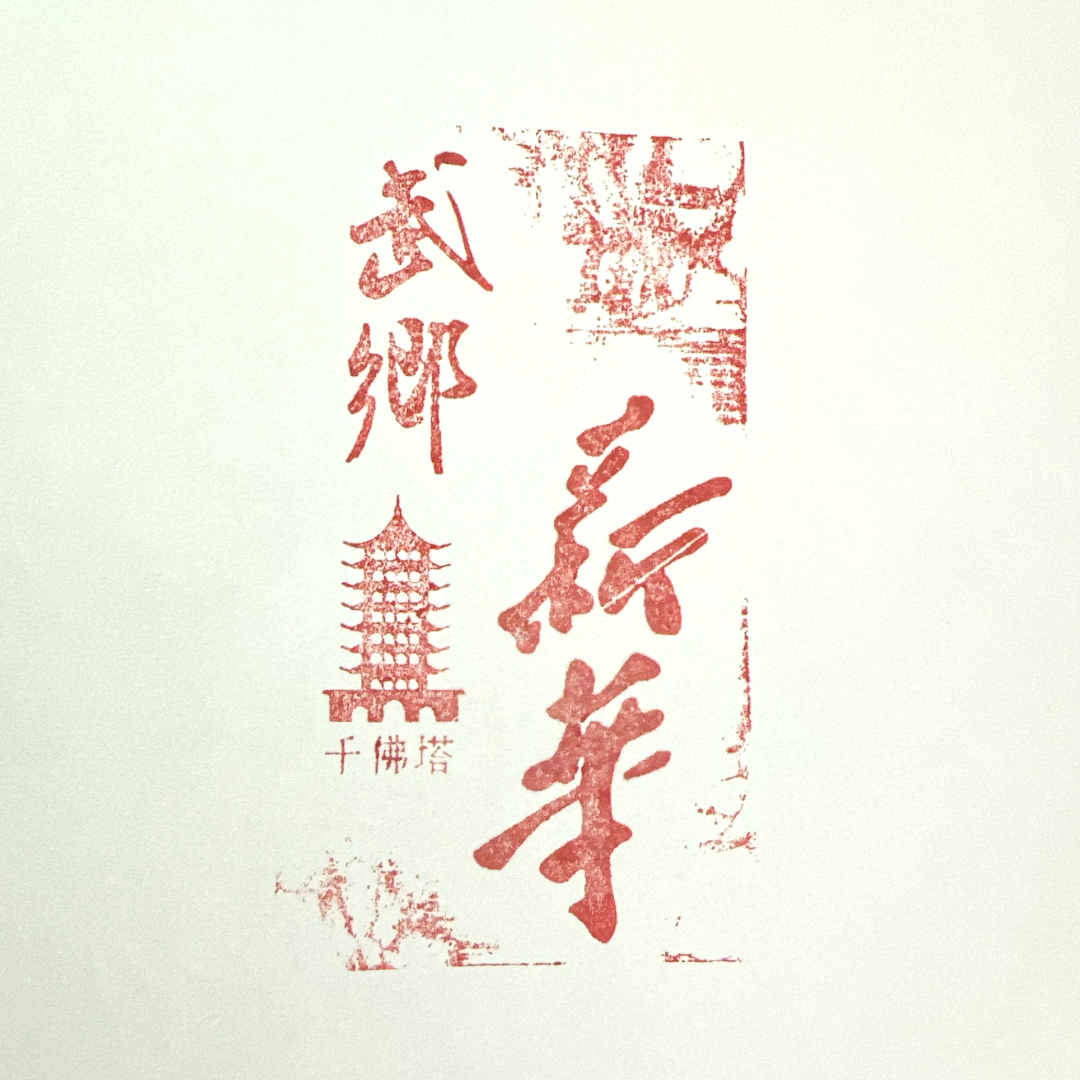 新華
武鄉
千佛塔